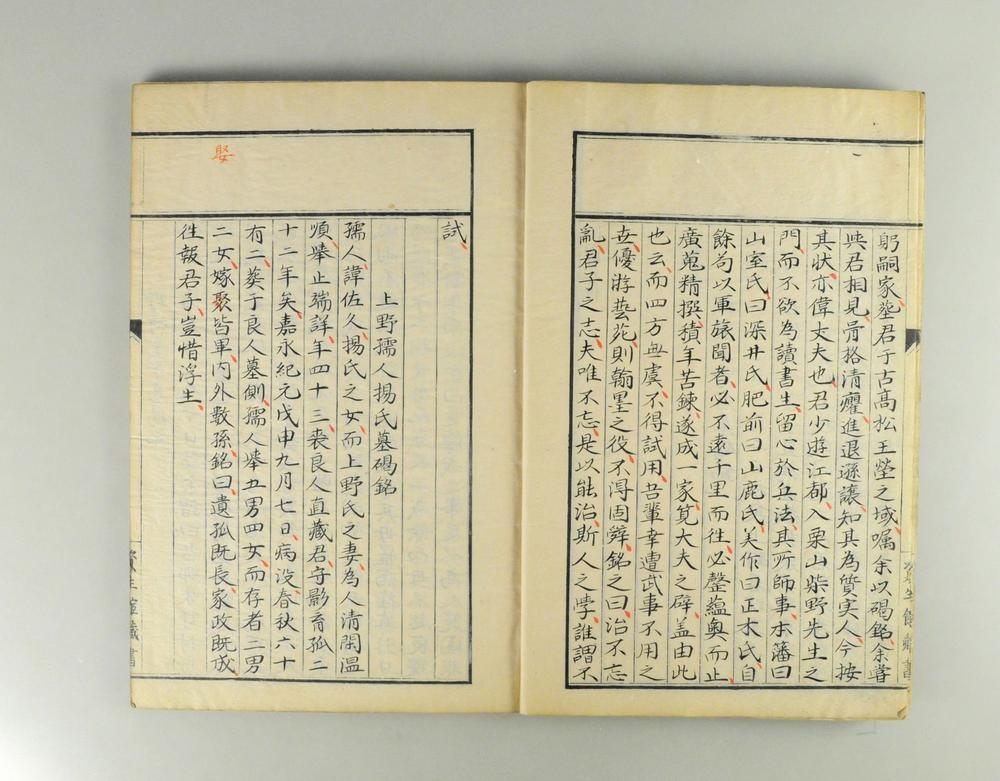 躬嗣家塟君子古髙松王塋之域嘱余以碣銘余嘗
與君相見骨格清癯進退遜讓知其為質実人今按
其狀亦偉丈夫也君少遊江都入栗山柴野先生之
門而不欲為讀書生留心於兵法其所師事本藩曰
山室氏曰深井氏肥前曰山鹿氏美作曰正木氏自
餘苟以軍旅聞者必不遠千里而徃必罄蘊奧而止
廣蒐精撰積年苦鍊遂成一家筧大夫之辟盖由此
也云而四方無虞不得試用吾輩幸遭武事不用之
世優游藝苑則翰墨之役不得固辤銘之曰治不忘
亂君子之志夫唯不忘是以能治斯人之學誰謂不
試
上野孺人揚氏墓碣銘
孺人諱佐久揚氏之女而上野氏之妻為人清閑温
順擧止端詳年四十三喪良人直藏君守影育孤二
十二年矣嘉永紀元戊申九月七日病没春秋六十
有二葬于良人墓側孺人擧五男四女而存者二男
二女嫁聚皆畢内外数孫銘曰遺孤既長家政既成
徃報君子豈惜浮生
娶